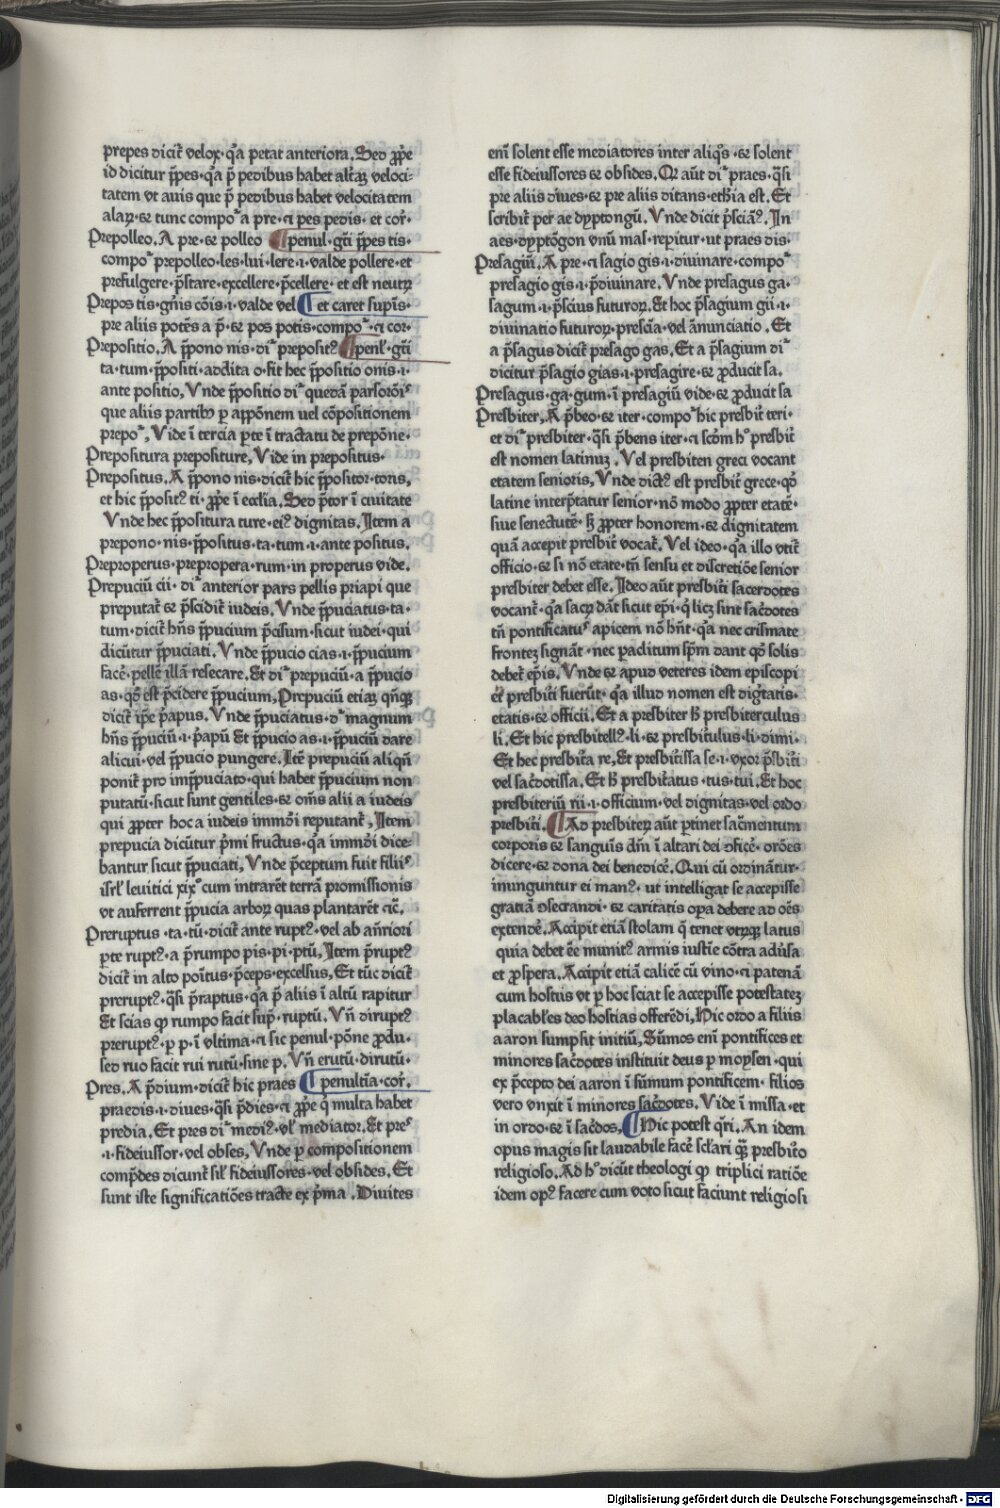 prepes dicit̃ velox·q̃a petat anteriora. Sed ꝓp̃e
id dicitur p̃pes·q̃a p̃ pedibus habet altaꝫ veloci-
tatem vt auis que p̃ pedibus habet velocitatem
alaꝝ·⁊ tunc compoʳ a pre·⁊ pes pedis·et cor̃·
Prepolleo. A pre·⁊ polleo ¶ penul·gt̃i p̃pes tis·
compoʳ prepolleo·les·lui·lere·i·valde pollere·et
prefulgere·p̃stare·excellere·p̃cellere·et est neutꝝ
Prepos tis·gñis cõis·i·valde vel ¶ et caret supĩs·
pre aliis potẽs a p̃·⁊ pos potis·compoʳ·⁊ cor·
Prepositio. A p̃pono nis·diʳ preposit⁹ ¶ penl̃·gt̃i
ta·tum·p̃positi·addita o·fit hec p̃positio onis·i·
ante positio, Vnde p̃positio diʳ quedã parsorõiˢ
que aliis partibꝰ p appõnem uel cõpositionem
prepoʳ, Vide ĩ tercia p̲te ĩ tractatu de prepõne·
Prepositura prepositure, Vide in prepositus·
Prepositus. A p̃pono nis·dicit̃ hic p̃positor·toris,
et hic p̃posit⁹ ti·ꝓp̃e ĩ eccl̃ia. Sed p̃tor ĩ ciuitate
Vnde hec p̃positura ture·ei⁹ dignitas. Item a
prepono·nis·p̃positus·ta·tum·i·ante positus.
Preproperus·prepropera·rum·in properus vide.
Prepuciũ cii·diʳ anterior pars pellis priapi que
preputat̃ ⁊ p̃scidit̃ iudeis. Vnde p̃puciatus·ta·
tum·dicit̃ hñs p̃pucium p̃cisum·sicut iudei·qui
dicũtur p̃puciati. Vnde p̃pucio cias·i·p̃pucium
facẽ·pellẽ illã resecare. Et diʳ prepuciũ·a p̃pucio
as·qõ est p̃cidere p̃pucium, Prepuciũ etiaꝫ qñqꝫ
dicit̃ ip̃e p̃apus. Vnde p̃puciatus·dʳ magnum
hñs p̃puciũ·i·p̃apũ Et p̃pucio as·i·p̃puciũ dare
alicui·vel p̃pucio pungere. Itẽ prepuciũ aliqñ
ponit̃ pro imp̃puciato·qui habet p̃pucium non
putatũ·sicut sunt gentiles·⁊ om̃s alii a iudeis
qui ꝓpter hoc a iudeis immõi reputant̃, Item
prepucia dicũtur p̃mi fructus·q̃a immõi dice-
bantur sicut p̃puciati, Vnde p̃ceptum fuit filiiˢ
isrl̃ leuitici xix° cum intrarẽt terrã promissionis
vt auferrent p̃pucia arboꝝ quas plantarẽt ⁊c̃.
Preruptus·ta·tũ·dicit̃ ante rupt⁹·vel ab añriori
p̲te rupt⁹·a p̃rumpo pis·pi·ptũ, Item p̃rupt⁹
dicit̃ in alto poĩtus·p̃ceps·excelsus, Et tũc dicit̃
prerupt⁹·q̃si p̃raptus·q̃a p̃ aliis ĩ altũ rapitur
Et scias ꝙ rumpo facit sup̃·ruptũ. Vñ dirupt⁹
prerupt⁹·p p·ĩ vltima·⁊ sic penul·põne ꝓdu·
sed ruo facit rui rutũ·sine p. Vñ erutũ·dirutũ·
Pres. A p̃dium·dicit̃ hic praes ¶ penultĩa·cor̃.
praedis·i·diues·q̃si p̃dies·⁊ ꝓp̃e q̃ multa habet
predia. Et pres diʳ medi⁹·vl̃ mediator. Et preˢ
·i·fideiussor·vel obses, Vnde p̲ compositionem
comp̃des dicunt̃ sil̃ fideiussores·vel obsides. Et
sunt iste significatiões tracte ex p̃ma. Diuites
eni᷑ solent esse mediatores inter aliq̃s·⁊ solent
esse fideiussores ⁊ obsides. Ql̃ aũt diʳ praes·q̃si
pre aliis diues·⁊ pre aliis ditans·ethĩa est. Et
scribit̃ per ae dyptongũ. Vnde dicit p̃sciã⁹. In
aes·dyptõgon vnũ mas̃·repitur·ut praes dis·
Presagiũ. A pre·⁊ sagio gis·i·diuinare·compoʳ
presagio gis·i·p̃diuinare. Vnde presagus ga·
sagum·i·p̃scius futuroꝝ. Et hoc p̃sagium gii·i·
diuinatio futuroꝝ·presc̃ia·vel ãnunciatio. Et
a p̃sagus dicit̃ presago gas. Et a p̃sagium diʳ
dicitur p̃sagio gias·i·presagire·⁊ ꝓducit sa.
Presagus·ga·gum·ĩ presagiũ vide·⁊ ꝓducit sa
Presbiter, A p̃beo·⁊ iter·compoʳ hic presbit̃ teri·
et diʳ presbiter·q̃si p̃bens iter·⁊ scõm hᵒ presbit̃
est nomen latinuꝫ. Vel presbiten greci vocant
etatem senioris, Vnde dict⁹ est presbit̃ grece·qõ
latine interp̃tatur senior·nõ modo ꝓpter etatẽ·
siue senectutẽ·sꝫ ꝓpter honorem·⁊ dignitatem
quã accepit presbit̃ vocat̃. Vel ideo·q̃a illo vtit̃
officio·⁊ si nõ etate·tñ sensu et discretiõe senior
presbiter debet esse. Ideo aũt presbit̃i sacerdotes
vocant̃·q̃a sacꝝ dãt sicut ep̃i·q̃ licꝫ sint sac̃dotes
tñ pontificatuˢ apicem nõ hñt·q̃a nec crismate
frontez signãt·nec paclitum sp̃m dant qõ solis
debet̃ ep̃is. Vnde ⁊ apud veteres idem episcopi
et̃ presbit̃i fuerũt·q̃a illud nomen est dig̃tatis·
etatis·⁊ officii. Et a presbiter hꝫ presbiterculus
li. Et hic presbitell⁹·li·⁊ presbit̃ulus·li·dimi·
Et hec presbit̃a re, Et presbit̃issa se·i·vxor p̃sbit̃i
vel sac̃dotissa. Et hꝫ presbit̃atus·tus·tui. Et hoc
presbiteriũ rii·i·officium·vel dignitas·vel ordo
presbit̃i. ¶ Ad presbiteꝝ aũt p̲tinet sac̃mentum
corporis ⁊ sanguĩs dñi ĩ altari dei ɔficẽ·orões
dicere·⁊ dona dei benedicẽ. Qui cũ ordinãtur·
inunguntur ei man⁹·ut intelligat se accepisse
gratiã ɔsecrandi·⁊ caritatis opa debere ad oẽs
extendẽ. Accipit etiã stolam q̃ tenet vtꝝqꝫ latus
quia debet ẽe munit⁹ armis iustie cõtra adũsa
et ꝓspera. Accipit etiã calicẽ cũ vino·⁊ patenã
cum hostiis vt p̲ hoc sciat se accepisse potestateꝫ
placabl̃es deo hostias offerẽdi, Hic ordo a filiis
aaron sumpsit initiũ, Sũmos eni᷑ pontifices et
minores sac̃dotes instituit deus p̲ moysen·qui
ex p̃cepto dei aaron ĩ sũmum pontificem·filios
vero vnxit ĩ minores sac̃dotes. Vide ĩ missa·et
in ordo·⁊ ĩ sac̃dos, ¶ Hic potest q̃ri. An idem
opus magis sit laudabile facẽ scl̃ari qꝫ presbit̃o
religioso. Ad hᵒ dicũt theologi ꝙ triplici ratiõe
idem op⁹ facere cum voto sicut faciunt religiosi
Digitalisierung gefördert durch die Deutsche Forschungsgemeinschaft - DFG